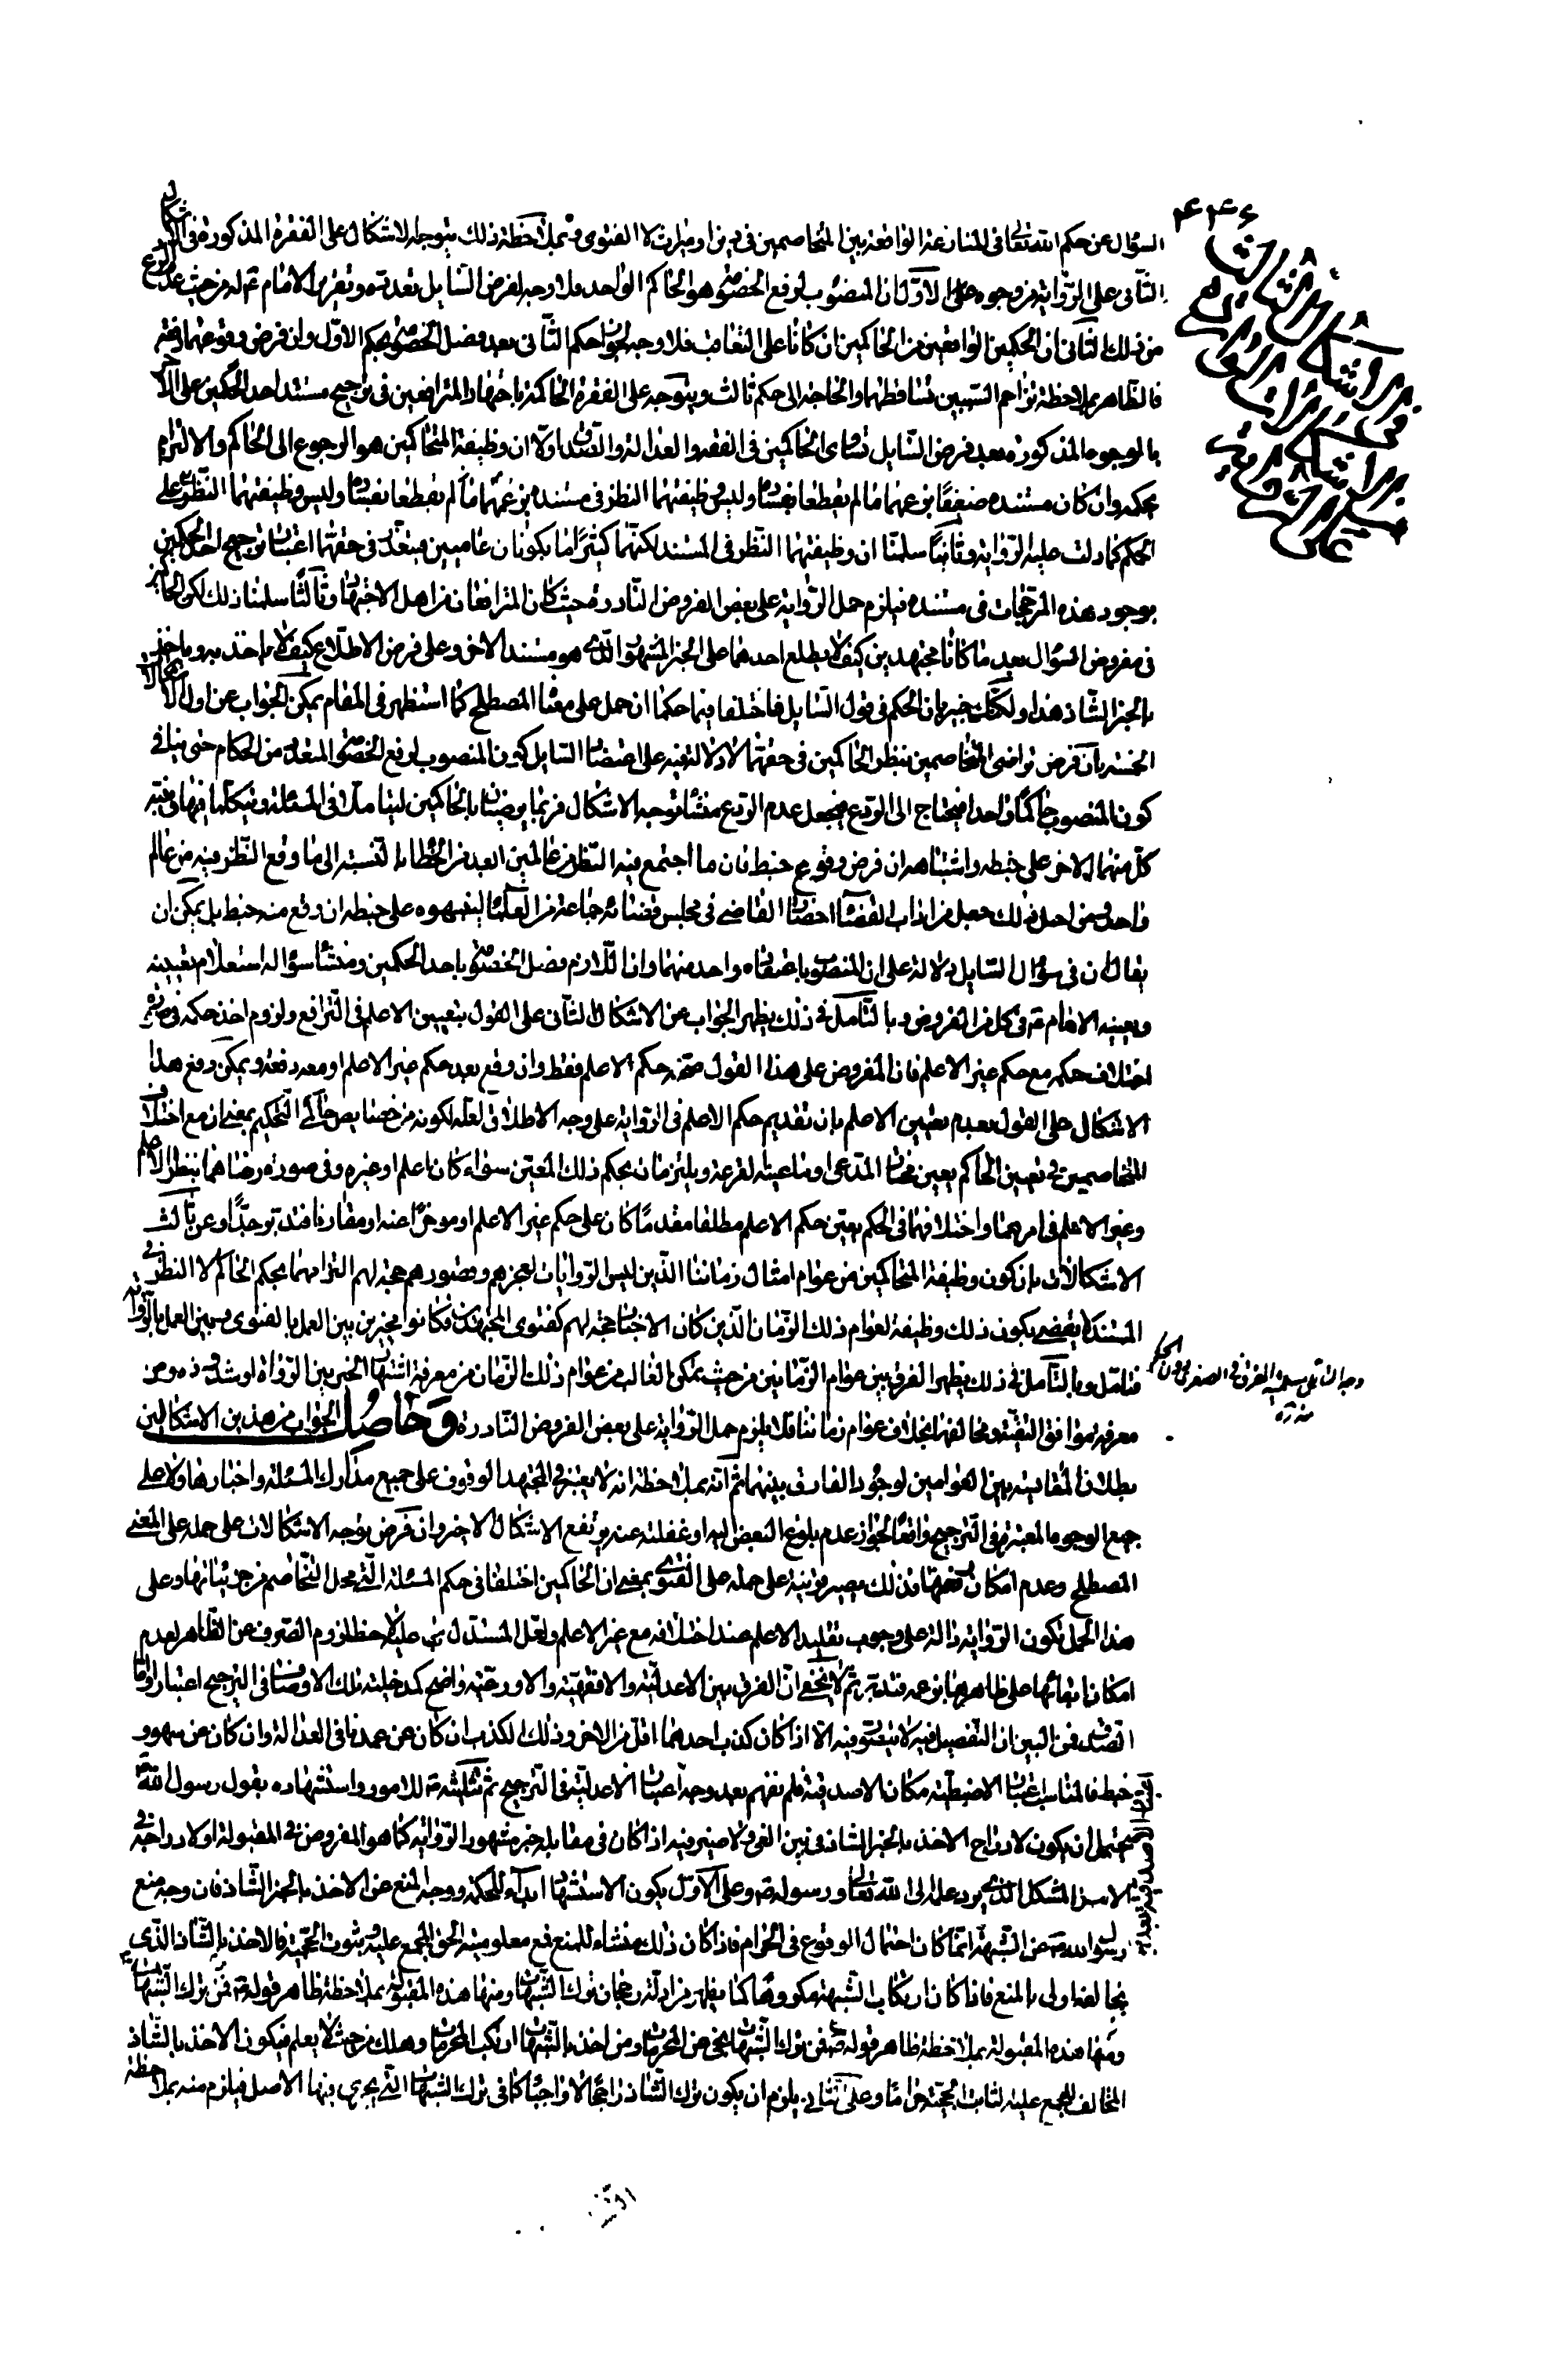 ۴۴۶
السؤال عن حكم الله تعالى في المنازعة الواقعة بين المتخاصمين في دين او ميراث لا الفتوى و بملاحظة ذلك يتوجه الاشكال على الفقرة المذكورة في
الثاني على الرواية من وجوه على الاول ان المنصوب لرفع الخصومة هو الحاكم الواحد فلا وجه لفرض السايل تعدده و تقرير الامام ع له من حيث عدم
من ذلك الثاني ان الحكمين الواقعين من الحاكمين ان كانا على التعاقب فلا وجه لجواز حكم الثاني بعد فصل الخصومة بحكم الاول و ان فرض وقوعهما دفعة
فالظاهر بملاحظة تزاحم السببين تساقطهما و الحاجة الى حكم ثالث و يتوجه على الفقرة الحاكمة باجتهاد المترافعين في ترجيح مستند احد الحكمين على الاخر
بالوجوه المذكورة بعد فرض السايل تساوى الحاكمين في الفقه و العدالة و الصدق اولا ان وظيفة المتحاكمين هو الرجوع الى الحاكم و الالتزام
بحكمه و ان كان مستنده ضعيفا بزعمهما ما لم يقطعا بفساده و ليس وظيفتهما النظر في مستنده بزعمهما ما لم يقطعا بفساده و ليس وظيفتهما النظر على
الحكم كما دلت عليه الرواية و ثانيا سلمنا ان وظيفتهما النظر في المستند لكنهما كثيرا ما يكونان عاميين فيتعذر في حقهما اعتبار ترجيح احد الحكمين
بوجود هذه المرجحات في مستنده فيلزم حمل الرواية على بعض الفروض النادرة حيث كان المترافعان من اهل الاجتهاد و ثالثا سلمنا ذلك لكن الحاكمين
في مفروض السؤال بعد ما كانا مجتهدين كيف لا يطلع احدهما على الخبر المشهور الذى هو مستند الاخر و على فرض الاطلاع كيف لا ياخذ به و ياخذ
بالخبر الشاذ هذا و لكنك خبير بان الحكم في قول السايل فاختلفا فيما حكما ان حمل على معناه المصطلح كما استظهر في المقام يمكن الجواب عن اول
الخمسة بان فرض تراضى المتخاصمين بنظر الحاكمين في حقهما لا دلالة فيه على اعتقاد السايل كون المنصوب لرفع الخصومة المتعدد من الحكام حتى ينافي
كون المنصوب حاكما واحدا فيحتاج الى الردع فيجعل عدم الردع منشأ توجه الاشكال فربما يرضيان بالحاكمين ليتاملا في المسئلة و يتكلما فيها فينبه
كل منهما الاخر على خبطه و اشتباهه ان فرض وقوع خبط فان ما اجتمع فيه النظر من عالمين ابعد من الخطاء بالنسبة الى ما وقع النظر فيه من عالم
واحد و من اجل ذلك جعل من اداب القضاء احضار القاضى في مجلس قضائه جماعة من العلماء لينبهوه على خبطه ان وقع منه خبط بل يمكن ان
يقال ان في سؤال السايل دلالة على ان المنصوب باعتقاده واحد منهما و ان اللازم فصل الخصومة باحد الحكمين و منشأ سؤاله استعلام تعيينه
و يعينه الامام ع في كل من الفروض و بالتامل في ذلك يظهر الجواب عن الاشكال الثانى على القول بتعيين الاعلم في الترافع و لزوم اخذ حكمه في صورة
اختلاف حكمه مع حكم غير الاعلم فان المفروض على هذا القول صحة حكم الاعلم فقط و ان وقع بعد حكم غير الاعلم او معه دفعة و يمكن دفع هذا
الاشكال على القول بعدم تعيين الاعلم بان تقديم حكم الاعلم في الرواية على وجه الاطلاق لعله لكونه من خصايص حاكم التحكيم بمعنى ان مع اختلاف
المتخاصمين في تعيين الحاكم يعين مختار المدعى او ما عينته القرعة و يلتزمان بحكم ذلك المعين سواء كان اعلم او غيره و في صورة رضاهما بنظر الاعلم
و غير الاعلم في امرهما و اختلافهما في الحكم يعين حكم الاعلم مطلقا مقدما كان على حكم غير الاعلم او مؤخرا عنه او مقارنا فتدبر جدا و عن ثالث
الاشكالات بان كون وظيفة المتحاكمين من عوام امثال زماننا الذين ليس الروايات لعجزهم و قصورهم حجة لهم التزامهما بحكم الحاكم لا النظر في
المستند لا يقضى بكون ذلك وظيفة لعوام ذلك الزمان الذين كان الاخبار حجة لهم كفتوى المجتهد فكانوا مخيرين بين العمل بالفتوى و بين العمل بالرواية
فتامل و بالتامل في ذلك يظهر الفرق بين عوام الزمانين من حيث تمكن الغالب من عوام ذلك الزمان من معرفة اشتهار الخبر بين الرواة او شذوذه و من
معرفة موافقة التقية و مخالفتها بخلاف عوام زماننا فلا يلزم حمل الرواية على بعض الفروض النادرة و حاصل الجواب من هذين الاشكالين
بطلان المقايسة بين العوامين لوجود الفارق بينهما ثم انه بملاحظة انه لا يعتبر في المجتهد الوقوف على جميع مدارك المسئلة و اخبارها و لا على
جميع الوجوه المعتبرة في الترجيح واقعا لجواز عدم بلوغ البعض اليه او غفلته عنه يرتفع الاشكال الاخير و ان فرض توجه الاشكالات على حمله على المعنى
المصطلح و عدم امكان دفعها فذلك يصير قرينة على حمله على الفتوى بمعنى ان الحاكمين اختلفا في حكم المسئلة التى محل التخاصم من جزئياتها و على
هذا الحمل تكون الرواية دالة على وجوب تقليد الاعلم عند اختلافه مع غير الاعلم و لعل المستدل بنى عليه لملاحظة لزوم الصرف عن الظاهر لعدم
امكان ابقائها على ظاهرها بزعمه فتدبر ثم لا يخفى ان الفرق بين الاعدلية و الافقهية و الاورعية واضح كمدخلية تلك الاوصاف في الترجيح اعتبارا و اما
الصدق فمن البين ان التفصيل فيه لا يتصور فيه الا اذا كان كذب احدهما اقل من الاخر و ذلك الكذب ان كان عن عمد نافى العدالة و ان كان عن سهو و
خبط فالمناسب اعتبار الاضبطية مكان الاصدقية فلم نفهم بعد وجه اعتبار الاعدلية في الترجيح ثم تثليثه ع للامور و استشهاده بقول رسول الله ص
يحتمل ان يكون لادراج الاخذ بالخبر الشاذ في بين الغى و لا ضير فيه اذا كان في مقابله خبر مشهور الرواية كما هو المفروض في المقبولة او لادراجه في
الامر المشكل الذى يرد علمه الى الله تعالى و رسوله ص و على الاول يكون الاستشهاد ابداء للحكمة و وجه المنع عن الاخذ بالخبر الشاذ فان وجه منع
رسول الله ص عن الشبهة انما كان احتمال الوقوع في الحرام فاذا كان ذلك منشاء للمنع فمع معلومية الحق المجمع عليه و ثبوت الحجية فالاخذ بالشاذ الذى
يخالفه اولى بالمنع فاذا كان ارتكاب الشبهة مكروها كما يظهر من ادلة رجحان ترك الشبهات و منها هذه المقبولة بملاحظة ظاهر قوله ص فمن ترك الشبهات
و منها هذه المقبولة بملاحظة ظاهر قوله ص فمن ترك الشبهات نجى من المحرمات و من اخذ بالشبهات ارتكب المحرمات و هلك من حيث لا يعلم فيكون الاخذ بالشاذ
المخالف للمجمع عليه الثابت الحجية حراما و على الثانى يلزم ان يكون ترك الشاذ راجحا لا واجبا كما في ترك الشبهات التى يجرى فيها الاصل فيلزم منه بملاحظة